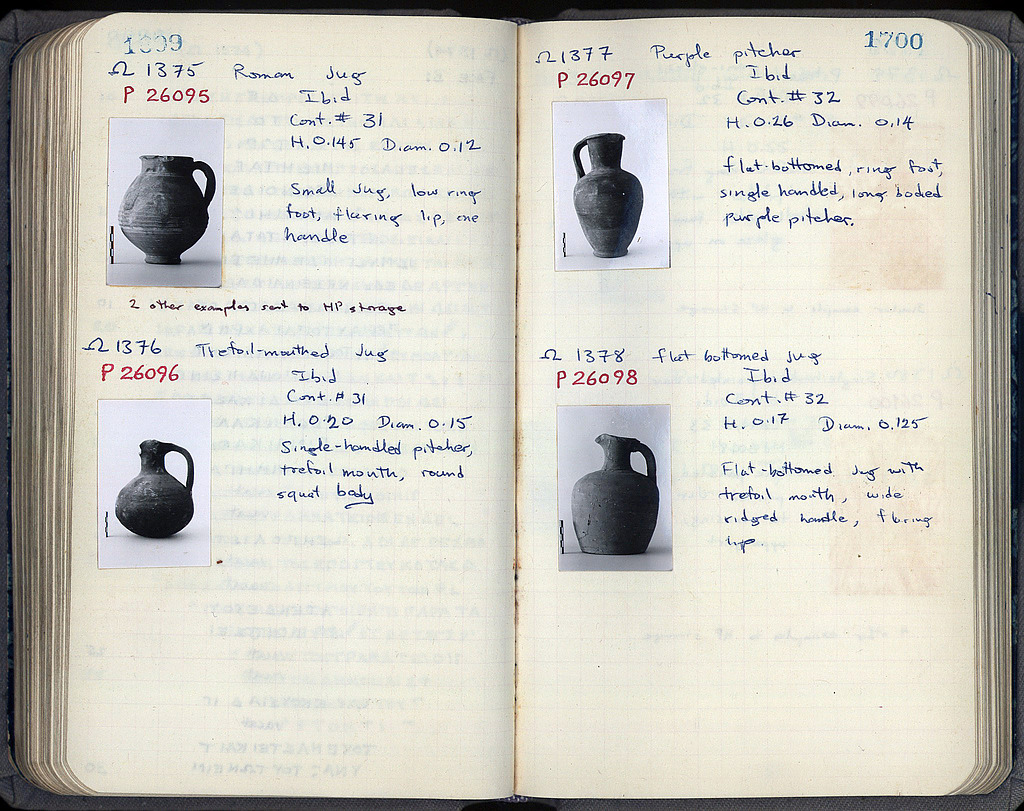 1699
Ω 1375 Roman Jug
P 26095
Ibid
Cont. # 31
H. 0.145 Diam. 0.12
Small Jug, low ring
foot, flaring lip, one
handle
2 other examples sent to HP storage
Ω 1376 Trefoil-mouthed Jug
P 26096
Ibid
Cont. # 31
H. 0.20 Diam. 0.15
Single-handled pitcher,
trefoil mouth, round
squat body
1700
Ω 1377 Purple pitcher
P 26097
Ibid
Cont. # 32
H. 0.26 Diam. 0.14
flat-bottomed, ring foot,
single handled, long bodied
purple pitcher.
Ω 1378 flat bottomed Jug
P 26098
Ibid
Cont. # 32
H. 0.17 Diam. 0.125
Flat-bottomed Jug with
trefoil mouth, wide
ridged handle, flaring
lip